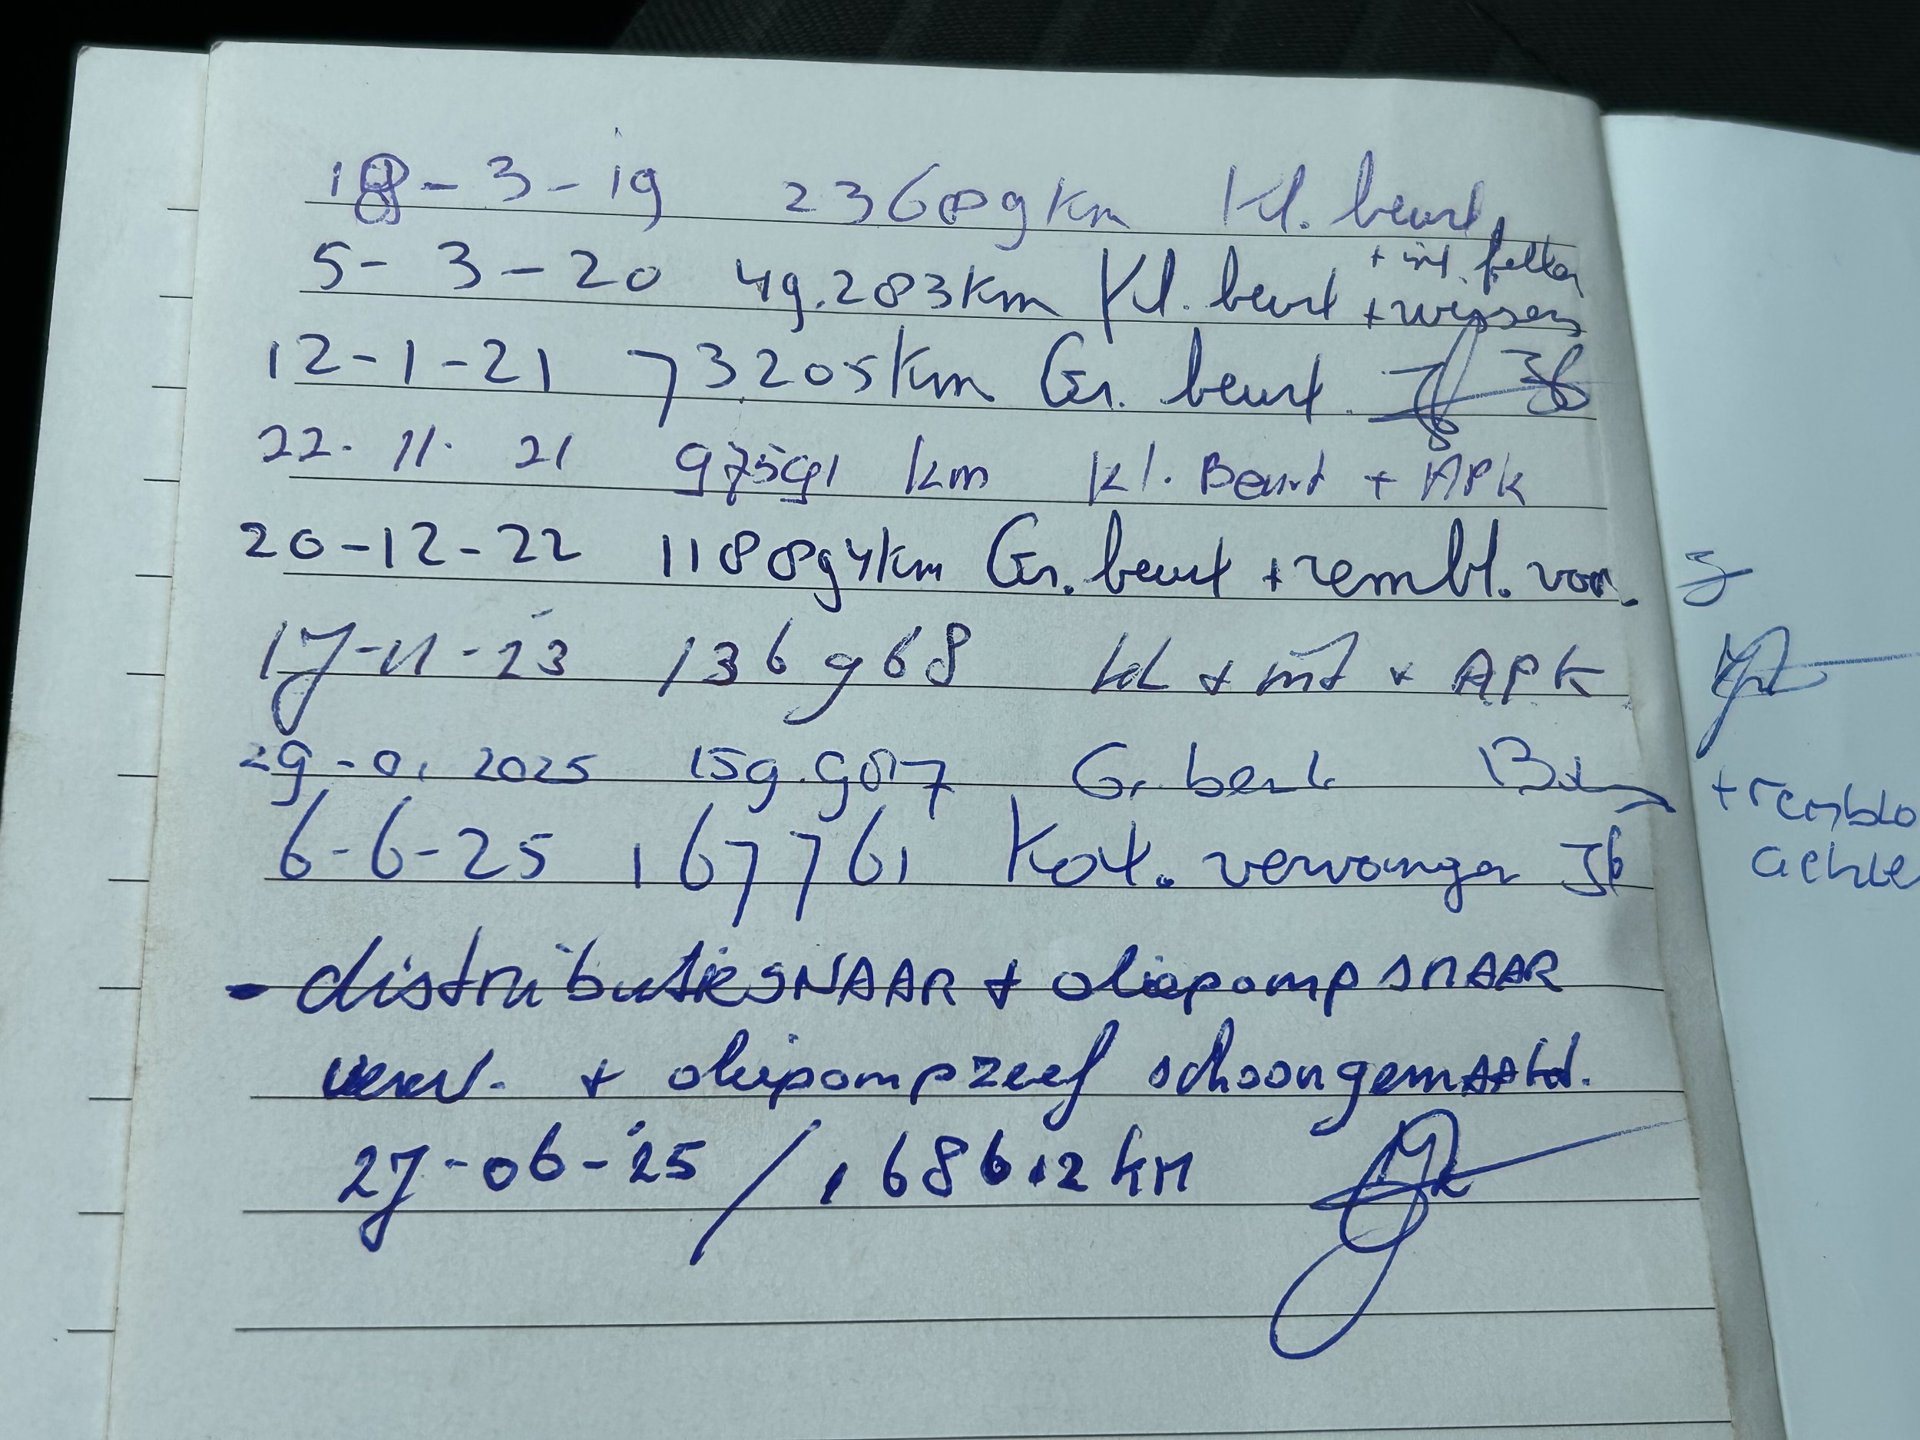 18-3-19 23689km Kl. beurt
+ int. filter
5-3-20 49.283km Kl. beurt + wissers
12-1-21 73205km Gr. beurt.
22. 11. 21 97591 km Kl. Beurt + APK
20-12-22 118894km Gr. beurt + rembl. voor.
17-11-23 136968 kl + int + APK
29-01 2025 159.987 Gr beurt
+ remblo
achte
6-6-25 167761 Kat. vervangen
- distributieSNAAR + oliepompSNAAR
verv. + oliepompzeef schoongemaakt.
27-06-25 / 168612 km